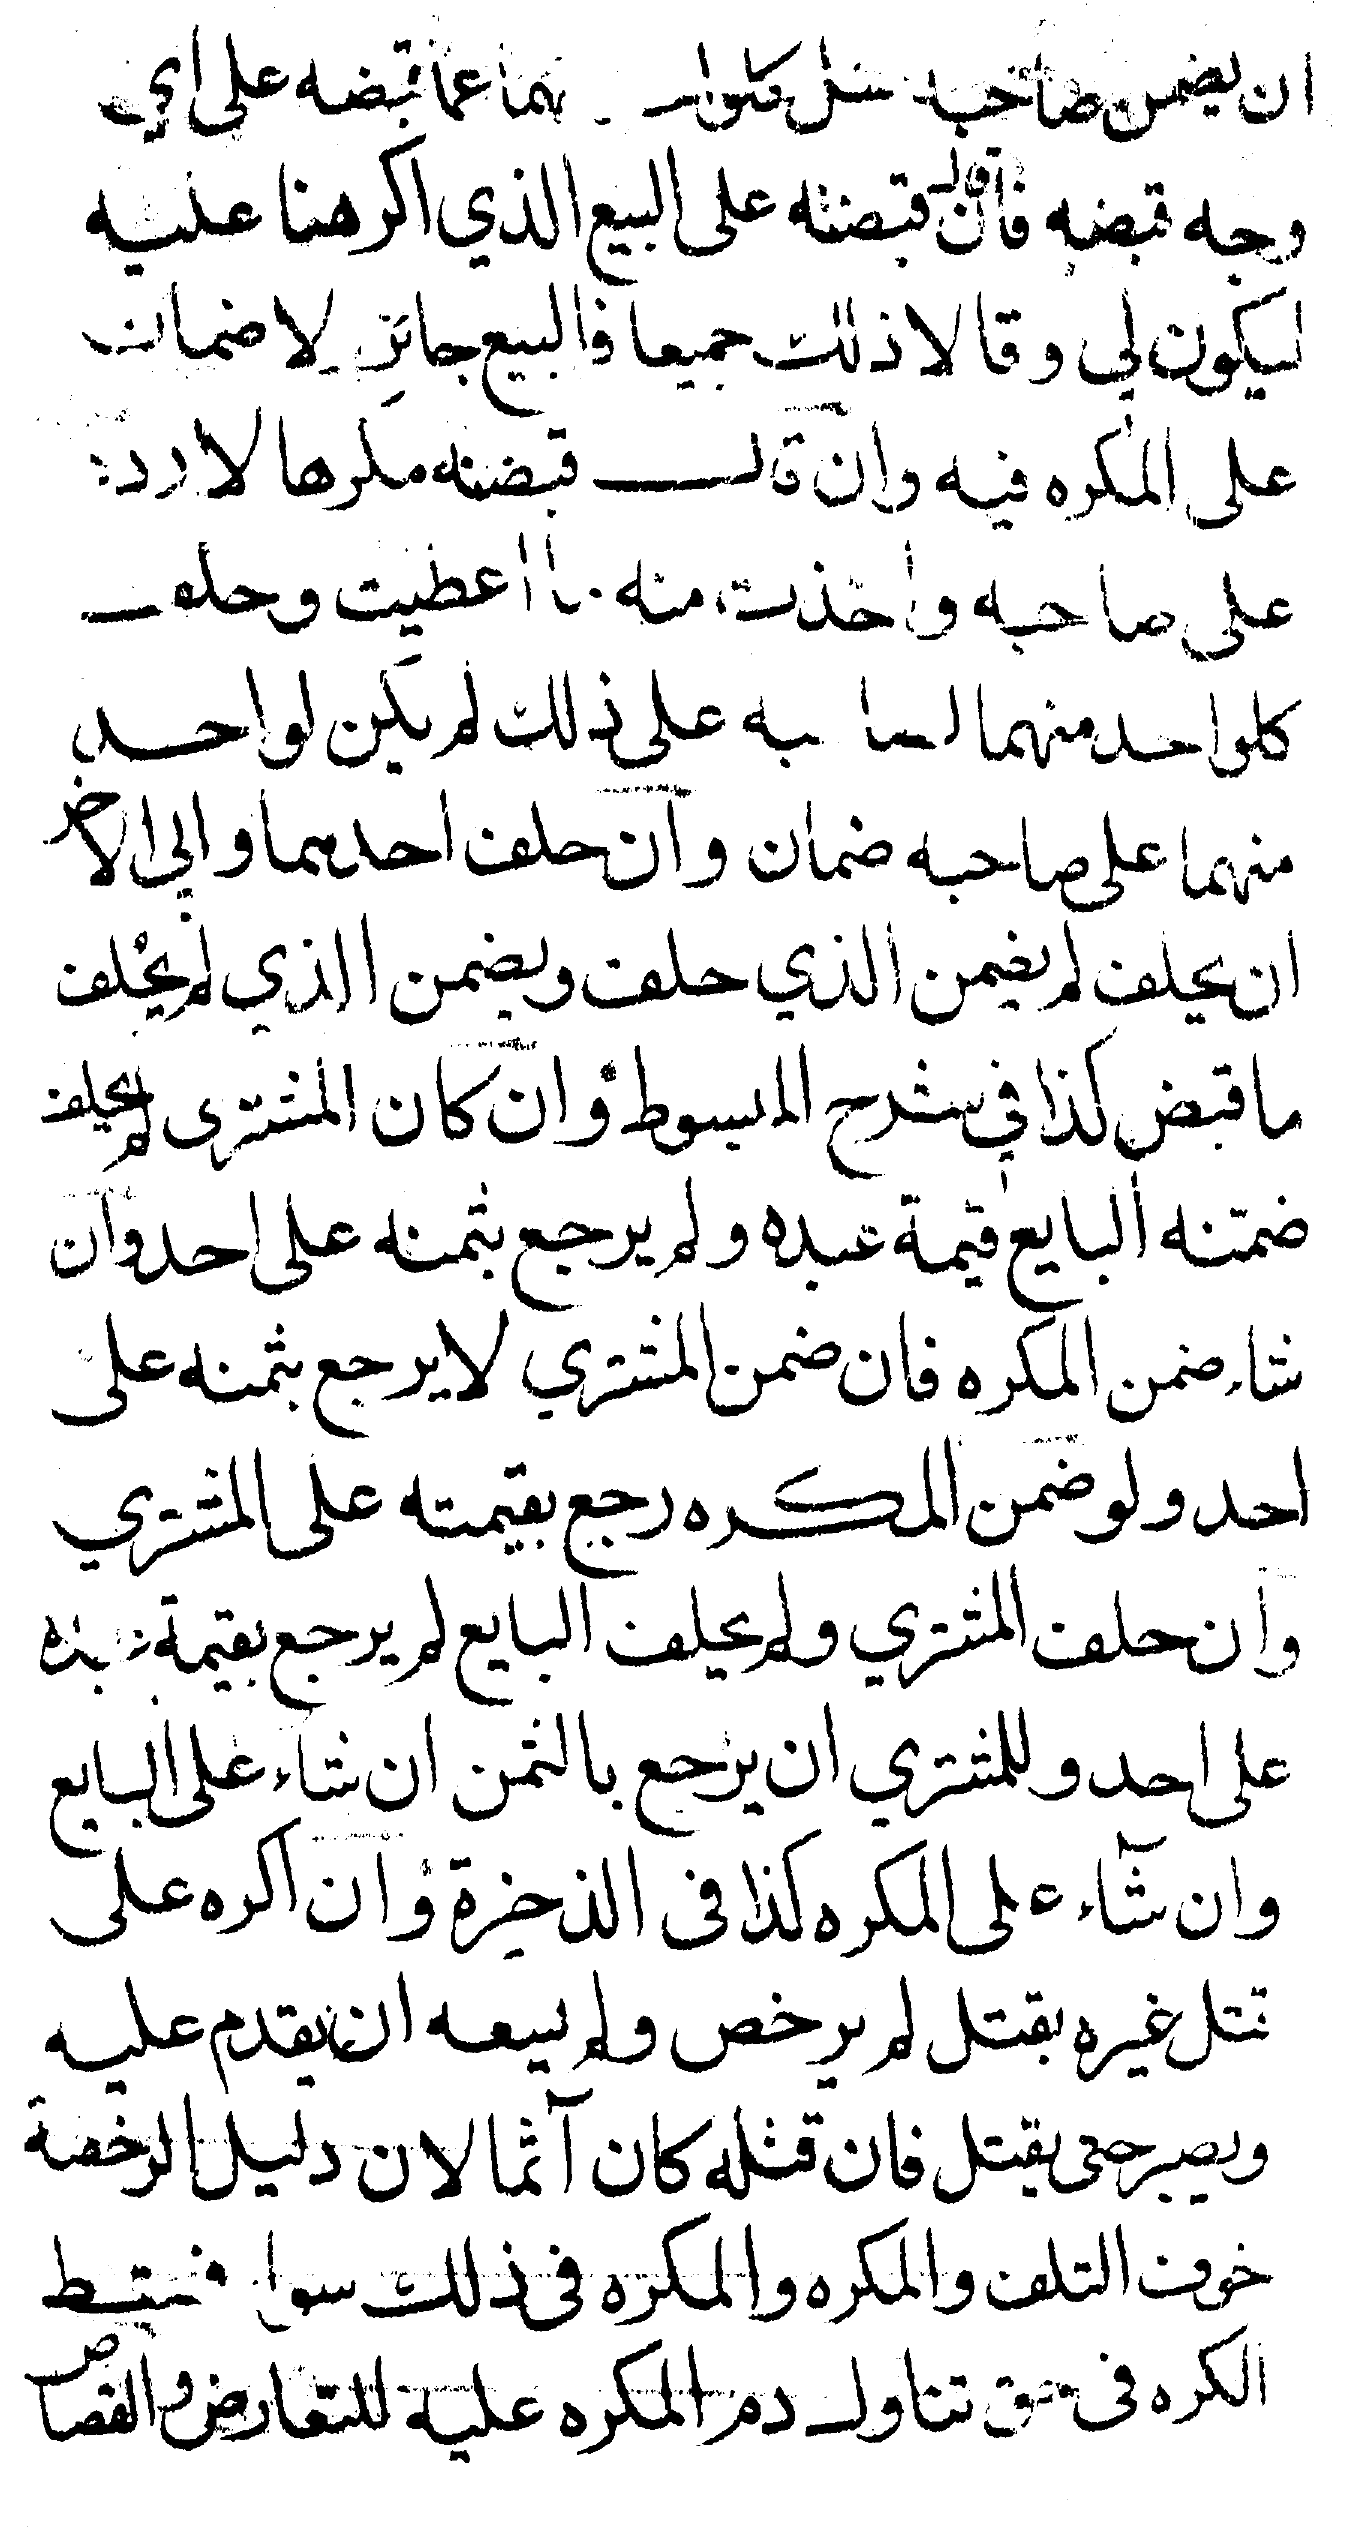 ان يضمن صاحبه سئل كلوا نهما عما قبضه على اي
وجه قبضه فان قال قبضته على البيع الذي اكرهنا عليه
ليكون لي وقالا ذلك جميعا فالبيع جايز لا ضمان
على المكره فيه وان قال قبضته مكرها لا رد
على صاحبه واخذت منه ما اعطيت وحلف
كلواحد منهما لصاحبه على ذلك لم يكن لواحد
منهما على صاحبه ضمان وان حلف احدهما وابى الاخر
ان يحلف لم يضمن الذي حلف ويضمن الذي لم يحلف
ما قبض كذا في شرح المبسوط وان كان المشترى لم يحلف
ضمنه البايع قيمة عبده ولم يرجع بثمنه على احد وان
شاء ضمن المكره فان ضمن المشتري لا يرجع بثمنه على
احد ولو ضمن المكره رجع بقيمته على المشتري
وان حلف المشتري ولم يحلف البايع لم يرجع بقيمة عبده
على احد وللمشتري ان يرجع بالثمن ان شاء على البايع
وان شآء على المكره كذا في الذخيرة وان اكره على
قتل غيره بقتل لم يرخص ولم يسعه ان يقدم عليه
ويصبر حتى يقتل فان قتله كان آثما لان دليل الرخصة
خوف التلف والمكره والمكره في ذلك سوا فسقط
الكره في حق تناول دم المكره عليه للتعارض والقصاص